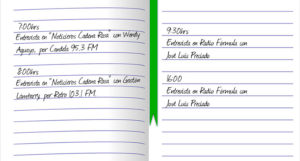 7:00hrs
Entrevista en "Noticieros Cadena Rasa" con Wendy
Aguayo, por Candela 95.3 FM
8:00hrs
Entrevista en "Noticieros Cadena Rasa" con Gastón
Lamtarry, por Retro 103.1 FM
9:30hrs
Entrevista en Radio Formula con
José Luis Preciado
16:00
Entrevista en Radio Formula con
José Luis Preciado